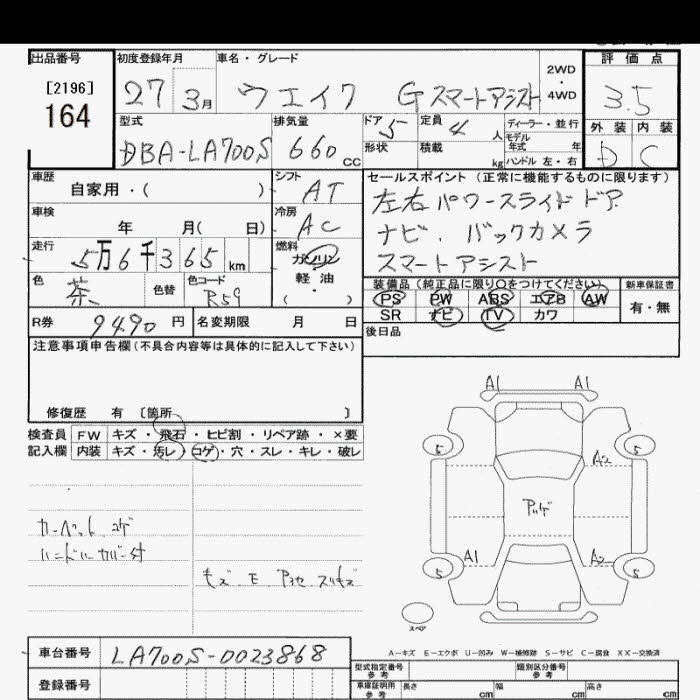 出品番号
[2196]
164
初度登録年月
27 3月
車名・グレード
ウエイク Gスマートアシスト
2WD
・
4WD
評価点
3.5
外装 内装
D C
型式
DBA-LA700S
排気量
660 cc
ドア 5
定員 4 人
ディーラー・並行
モデル
年式 年
形状
積載 kg
ハンドル 左・右
車歴
自家用・( )
シフト
AT
車検
年 月( 日)
冷房
AC
走行
5万6千365km
燃料
ガソリン
軽油
( ・ )
色
茶
色替
色コード
R59
R券 9490 円
名変期限 月 日
セールスポイント(正常に機能するものに限ります)
左右パワースライドドア
ナビ. バックカメラ
スマートアシスト
装備品(純正品に限り○をつけてください)
PS PW ABS エアB AW
SR ナビ TV カワ
新車保証書
有・無
後日品
注意事項申告欄(不具合内容等は具体的に記入して下さい)
修復歴 有 〔箇所 〕
検査員 FW キズ・飛石・ヒビ割・リペア跡・×要
記入欄 内装 キズ・汚レ・コゲ・穴・スレ・キレ・破レ
カーペット コゲ
A1 A1
5 5
A2
A1 A2
5 5
スペア
A-キズ E-エクボ U-凹み W-補修跡 S-サビ C-腐食 XX-交換済
車台番号 LA700S-0023868
登録番号
型式指定番号
参考
類別区分番号
参考
車庫証明用
参考
長さ cm 幅 cm 高さ cm